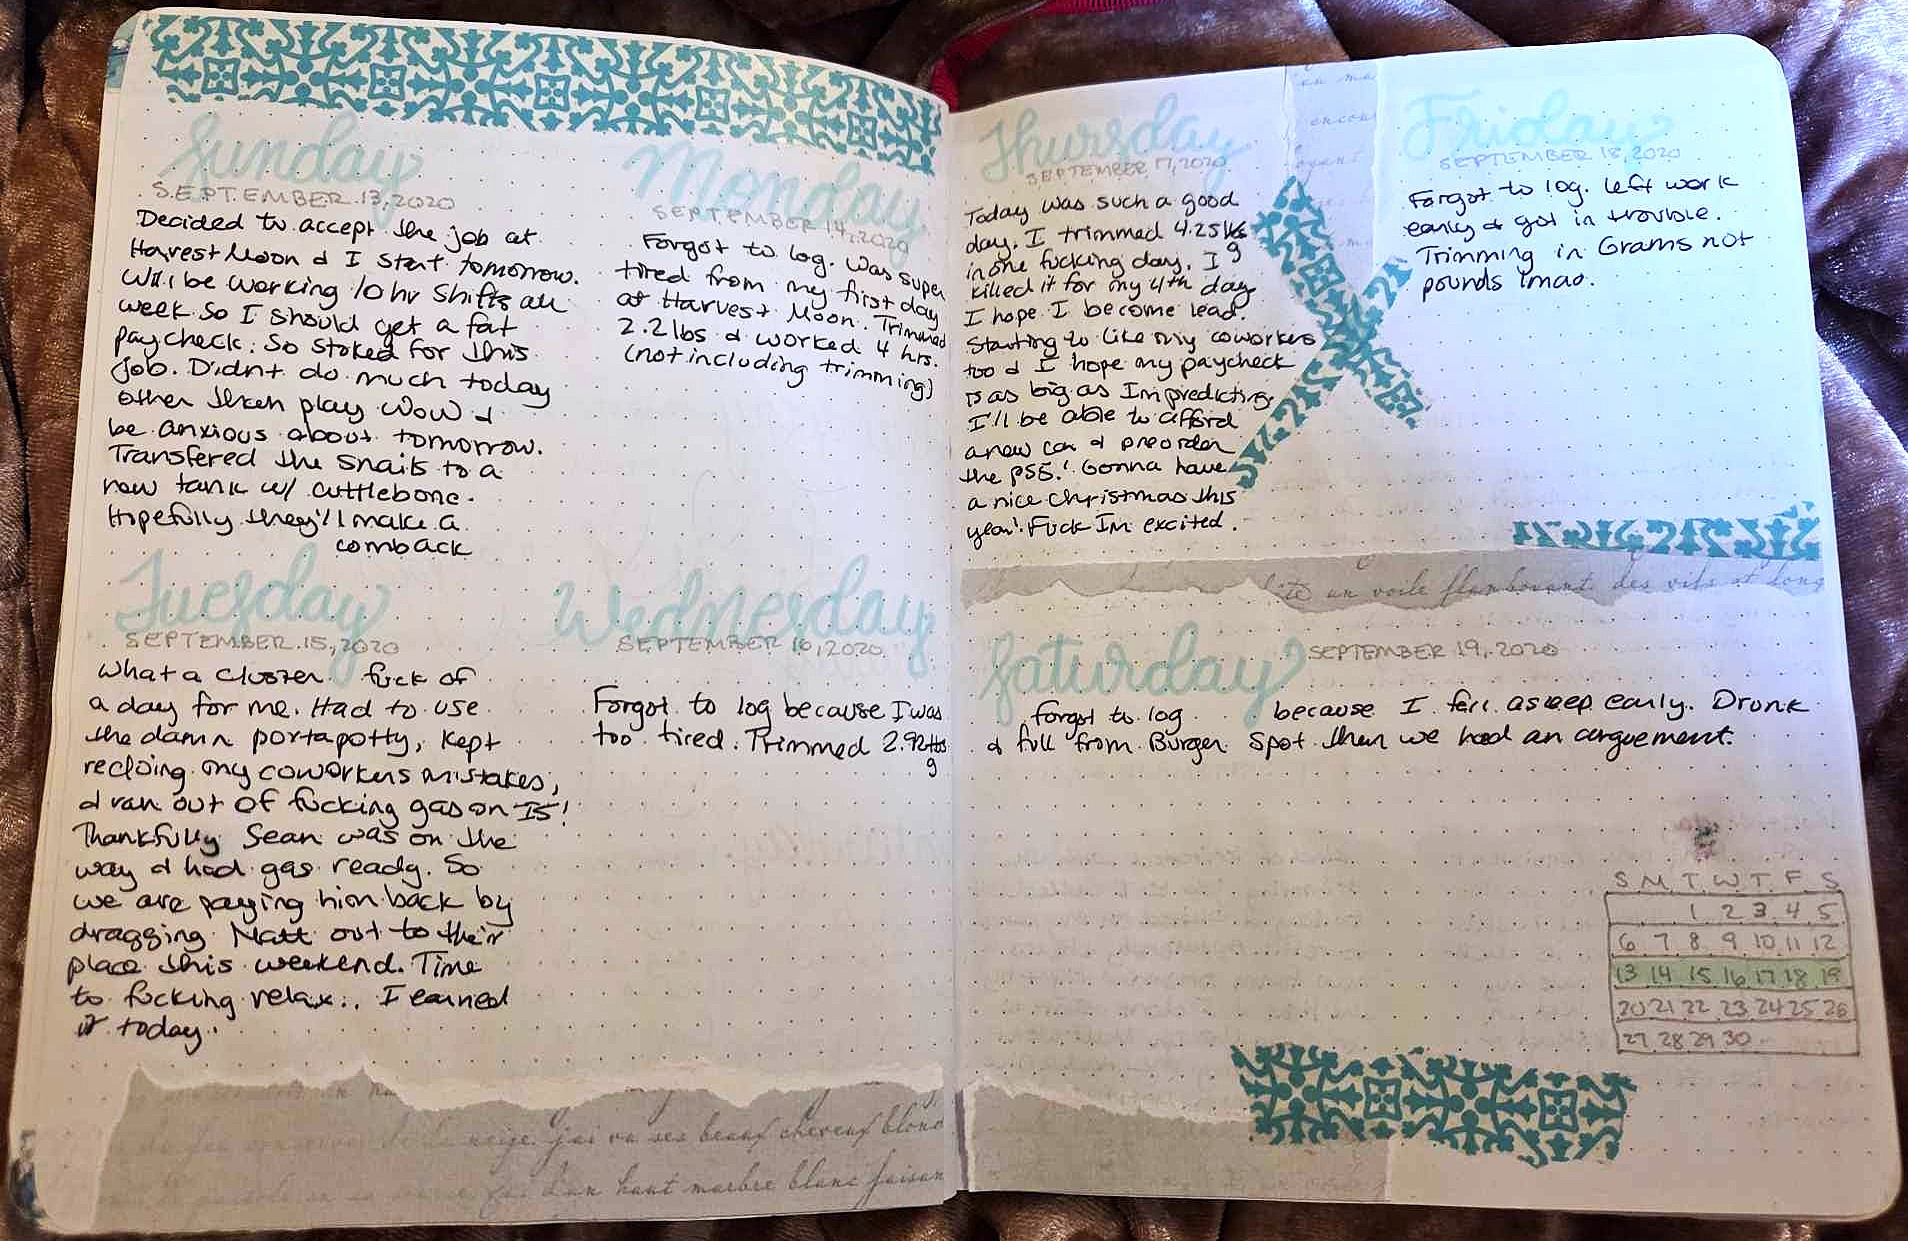 Sunday
SEPTEMBER 13, 2020
Decided to accept the job at
Harvest Moon & I start tomorrow.
Will be working 10 hr shifts all
week so I should get a fat
paycheck. So stoked for this
job. Didnt do much today
other than play WoW &
be anxious about tomorrow.
Transfered the snails to a
new tank w/ cuttlebone.
Hopefully they'll make a
comback
Monday
SEPTEMBER 14, 2020
Forgot to log. Was super
tired from my first day
at Harvest Moon. Trimmed
2.2 lbs & worked 4 hrs.
(not including trimming)
Tuesday
SEPTEMBER 15, 2020
What a cluster fuck of
a day for me. Had to use
the damn portapotty, kept
redoing my coworkers mistakes,
& ran out of fucking gas on I5!
Thankfully Sean was on the
way & had gas ready. So
we are paying him back by
dragging Matt out to their
place this weekend. Time
to fucking relax.. I earned
it today.
Wednesday
SEPTEMBER 16, 2020
Forgot to log because I was
too tired. Trimmed 2.92 lbs
g
Thursday
SEPTEMBER 17, 2020
Today was such a good
day. I trimmed 4.25
g
in one fucking day. I
killed it for my 4th day
I hope I become lead.
Starting to like my coworkers
too & I hope my paycheck
is as big as Im predicting.
I'll be able to afford
a new car & preorder
the PS5! Gonna have
a nice christmas this
year! Fuck Im excited.
Friday
SEPTEMBER 18, 2020
Forgot to log. Left work
early & got in trouble.
Trimming in Grams not
pounds lmao.
encou
un voile flamboyant des vifs et long
Saturday
SEPTEMBER 19, 2020
forgot to log because I fell asleep early. Drunk
& full from Burger Spot then we had an arguement.
S M T W T F S
1 2 3 4 5
6 7 8 9 10 11 12
13 14 15 16 17 18 19
20 21 22 23 24 25 26
27 28 29 30
de la neige j'ai vu ses beaux cheveux blond
d'un haut marbre blanc faisan